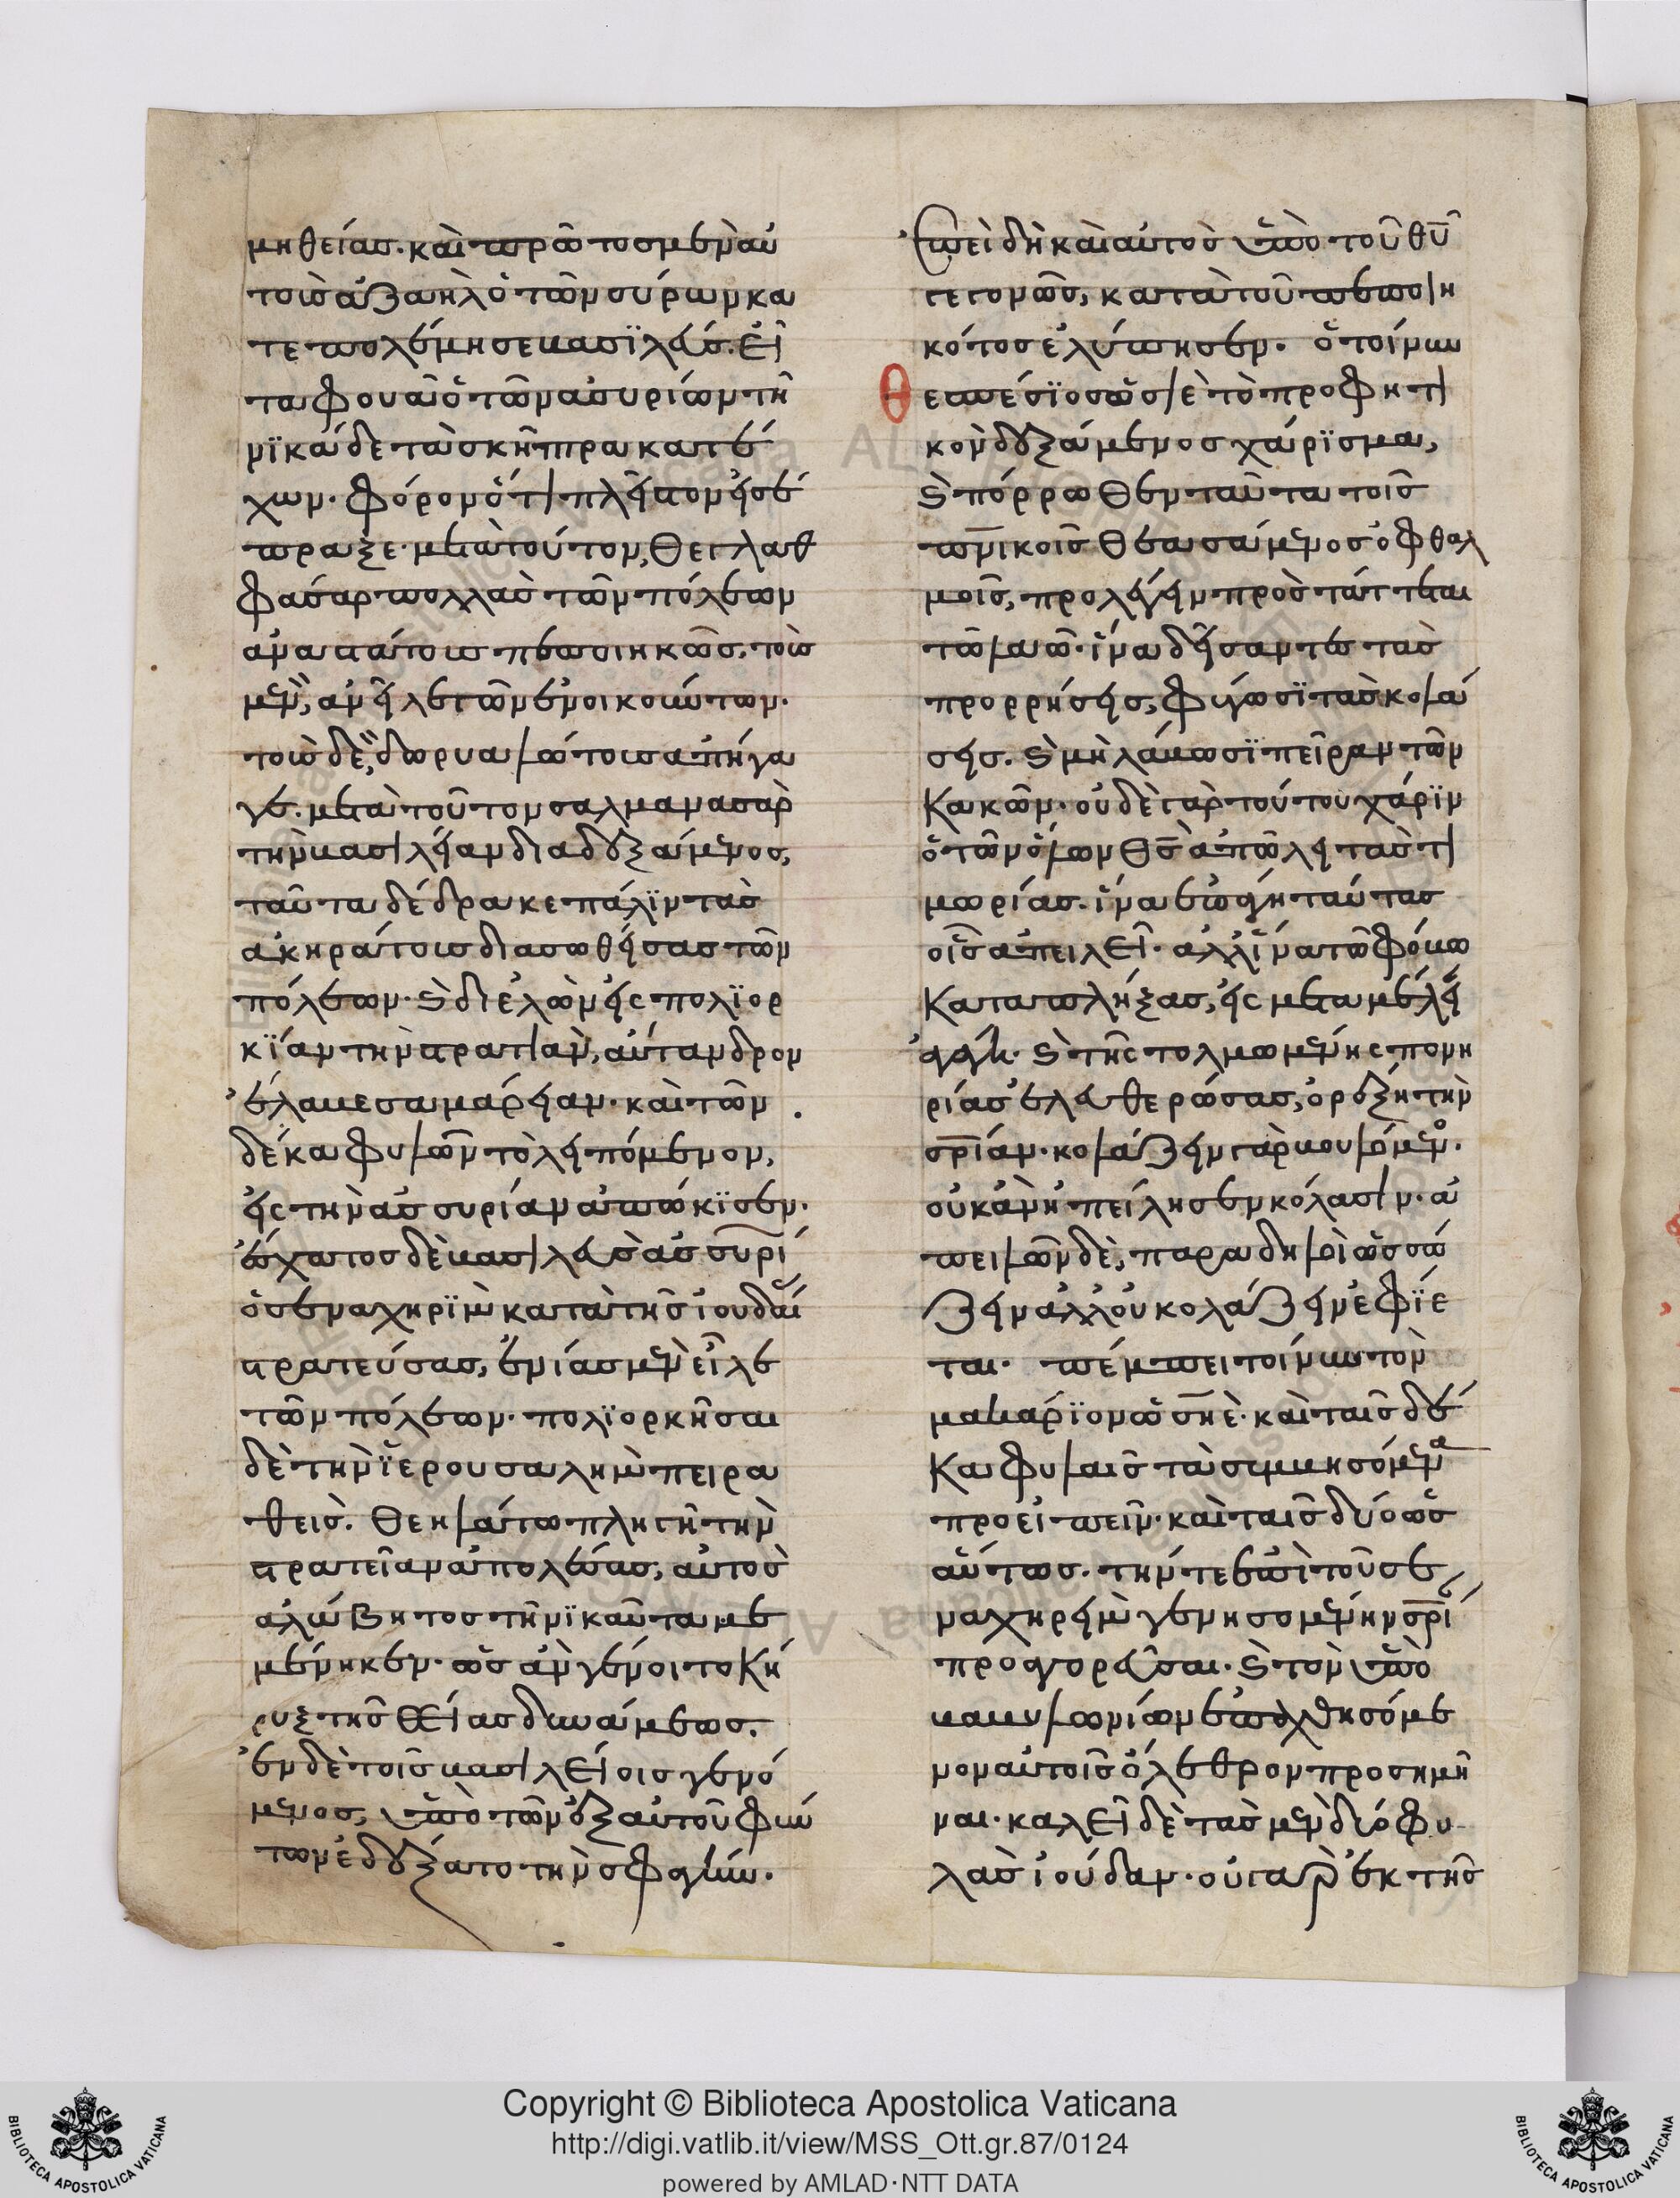 μηθείας· καὶ πρῶτος μὲν αὐ
τοῖς ἀζαὴλ ὁ τῶν σύρων κα
τεπολέμησε βασϊλεύς. εἶ
τα φουᾶ ὁ τῶν ἀσυρίων τη
νϊκάδε τὰ σκῆπτρα κατέ
χων· φόρον ὅτι πλεῖστον εἰσέ
πραξε· μετὰ τοῦτον, θεγλαθ
φάσαρ πολλὰς τῶν πόλεων
ἀναστάτους πεποιηκὼς. τοὺς
μὲν, ἀνεῖλε τῶν ἐνοικούντων·
τοὺς δὲ, δορυαλώτους ἀπήγα
γε. μετὰ τοῦτον σαλμανασὰρ
τὴν βασιλείαν διαδεξάμενος,
ταῦτα δέδρακε πάλϊν τὰς
ἀκηράτους διασωθείσας τῶν
πόλεων· καὶ διελὼν εἰς πολϊορ
κϊαν τὴν στρατιὰν, αὔτανδρον
ἔλαβε σαμάρειαν· καὶ τῶν
δέκα φυλῶν τὸ λειπόμενον,
εἰς τὴν ἀσσυρίαν ἀπώκϊσεν·
ἔσχατος δὲ βασιλεὺς ἀσσυρί
ὁ σεναχηρϊμ κατὰ τῆς ἰουδαί
στρατεύσας, ἐνίας μὲν εἷλε
τῶν πόλεων· πολϊορκῆσαι
δὲ τὴν ϊερουσαλὴμ πειρα
θεὶς. θεηλάτω πληγῆ τὴν
στρατείαν ἀπολέσας, αὐτὸς
ἀλώβητος τηνϊκαῦτα με
μένηκεν· ὡς ἂν γένοιτο κή
ρυξ τῆς θείας δυνάμεως.
ἐν δὲ τοῖς βασιλείοις γενό
μενος, ὑπὸ τῶν ἐξ αὐτοῦ φύν
των ἐδέξατο τὴν σφαγήν.
Ἐπειδὴ καὶ αὐτὸς ὑπὸ τοῦ θυ
γεγονὼς, κατὰ τοῦ πεποιη
κότος ἐλύττησεν. ὁ τοίνυν
θεσπέσϊος ὡσιὲ τὸ προφητι
κὸν δεξάμενος χάρϊσμα,
καὶ πόρρωθεν ταῦτα τοῖς
πνικοῖς θεασάμενος ὀφθαλ
μοῖς, προλέγειν προστάττεται
τῶ λαῶ· ἵνα δείσαντες τὰς
προρρήσεις, φύγωσϊ τὰς κολά
σεις. καὶ μὴ λάβωσϊ πεῖραν τῶν
κακῶν· οὐδὲ γὰρ τούτου χάρϊν
ὁ τῶν ὅλων θς ἀπειλεῖ τὰς τι
μωρίας. ἵνα ἐπαγάγη ταύτας
οἷς ἀπειλεῖ· ἀλλ' ἵνα τῶ φόβω
καταπλήξας, εἰς μεταμέλει
καὶ τῆς τολμωμένης πονη
ρίας ἐλευθερώσας, ὀρέξη τὴν
σρίαν· κολάζειν γὰρ βουλόμενος
οὐκ ἂν ἠπείλησεν κόλασιν· ἀ
πειλῶν δὲ, παραδηλοῖ ὡς σώ
ζειν ἀλλ' οὐ κολάζειν ἐφϊε
ται· πέμπει τοίνυν τὸν
μακάρϊον ὡσηὲ· καὶ ταῖς δέ
κα φυλαῖς τὰ συμβησόμενα
προειπεῖν· καὶ ταῖς δύο ὡσ
αύτως. τήν τε ἐπὶ τοῦ σε
ναχηρεὶμ γενησομένην σρί
προαγορεῦσαι· καὶ τὸν ὑπὸ
βαβυλωνίων ἐπενεχθησόμε
νον αὐτοῖς ὄλεθρον προσημῆ
ναι· καλεῖ δὲ τὰς μὲν δύο φυ
λὰς ἰούδαν· οὐ γὰρ ἐκ τῆς
Copyright © Biblioteca Apostolica Vaticana
http://digi.vatlib.it/view/MSS_Ott.gr.87/0124
powered by AMLAD·NTT DATA
BIBLIOTECA APOSTOLICA VATICANA
BIBLIOTECA APOSTOLICA VATICANA